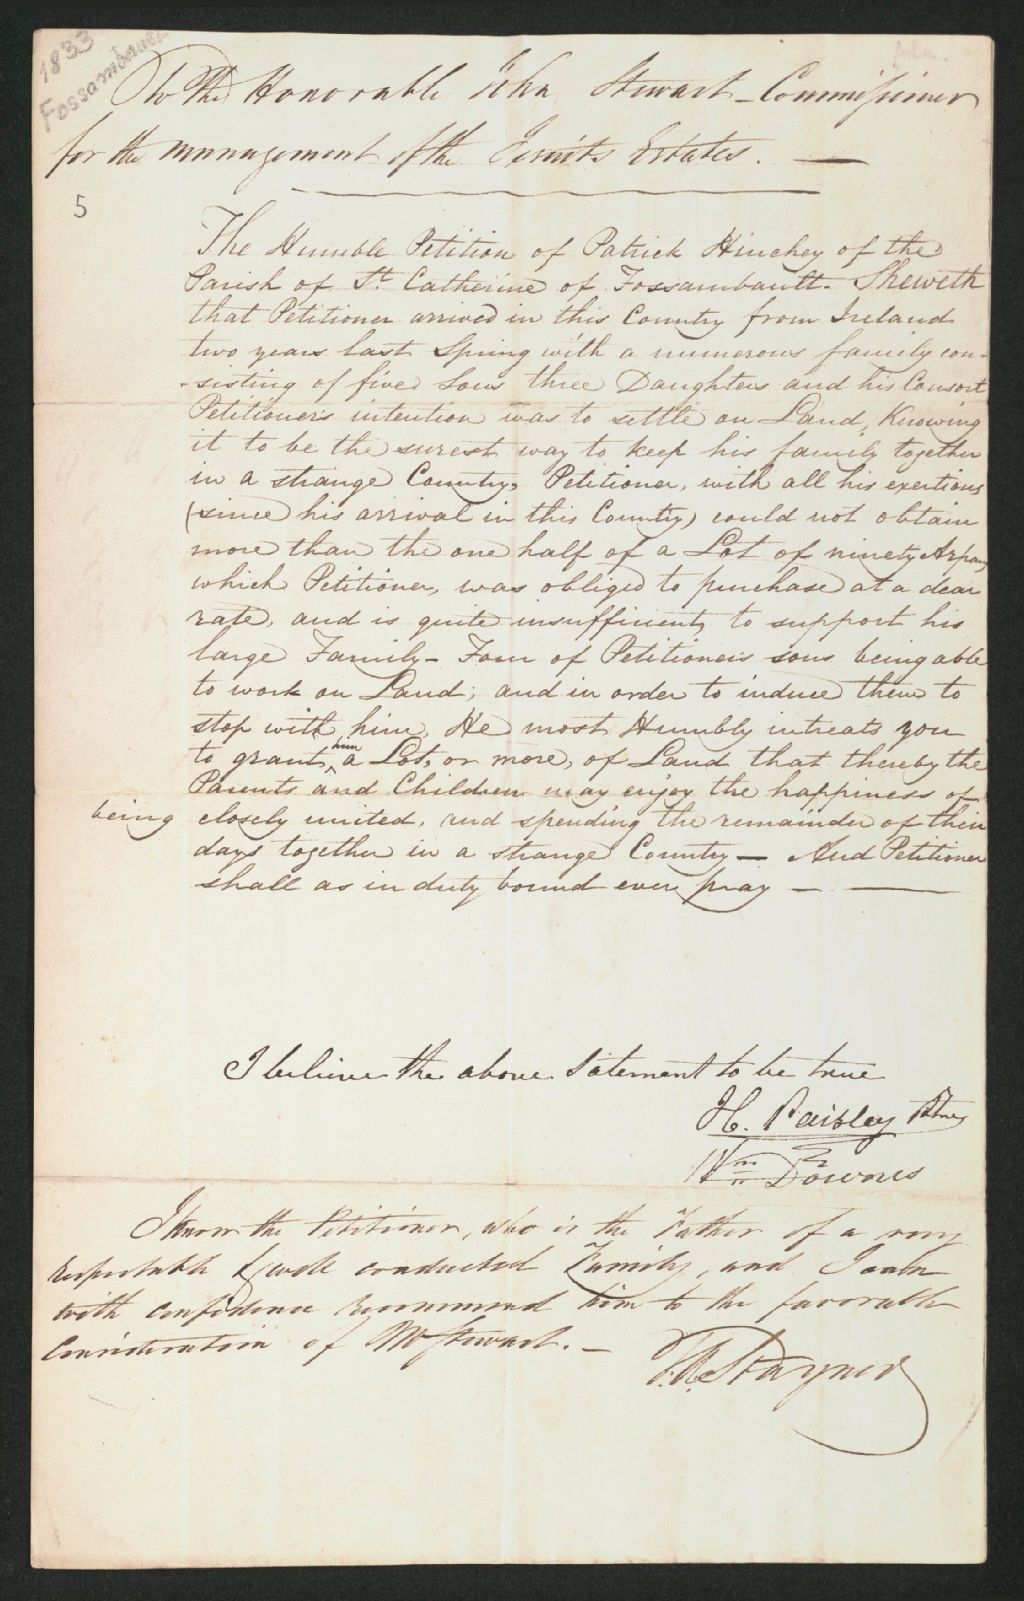 1833
Fossambault
To The Honorable John Stewart Commissioner
for the management of the Jesuits Estates. —
5
The Humble Petition of Patrick Hinchey of the
Parish of St. Catherine of Fossambault. Sheweth
that Petitioner arrived in this Country from Ireland
two years last Spring with a numerous family con-
-sisting of five Sons three Daughters and his Consort
Petitioner's intention was to settle on Land, Knowing
it to be the surest way to keep his family together
in a strange Country, Petitioner, with all his exertions
(since his arrival in this Country) could not obtain
more than the one half of a Lot of ninety Arpans
which Petitioner, was obliged to purchase at a dear
rate, and is quite insufficient, to support his
large Family – Four of Petitioner's sons being able
to work on Land; and in order to induce them to
stop with him, He most Humbly intreats you
to grant, him a Lot, or more, of Land that thereby the
Parents and Children may enjoy the happiness of
being closely united, and spending the remainder of their
days together in a strange Country — And Petitioner
shall as in duty bound ever pray — —
I believe the above Satement to be true
H. Paisley
Wm Downes
I know the Petitioner, who is the Father of a very
respectable & well conducted Family, and I can
with confidence recommend him to the favorable
Consideration of Mr Stewart. —
T.A. Stayner